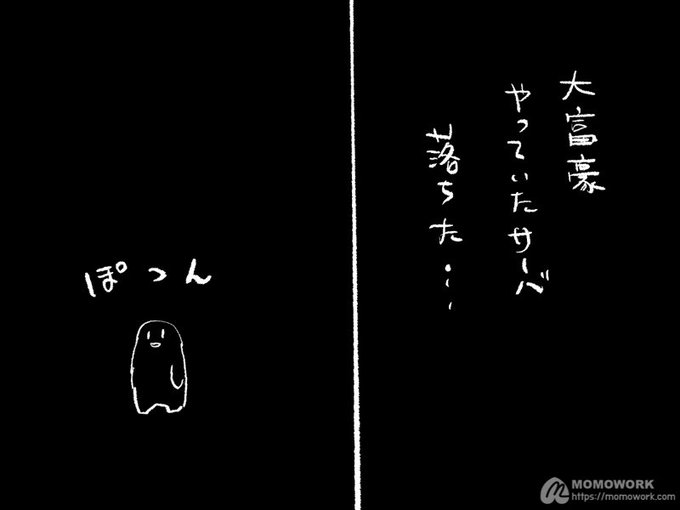 大富豪
やっていたサーバ
落ちた・・・
ぽつん
MOMOWORK
https://momowork.com